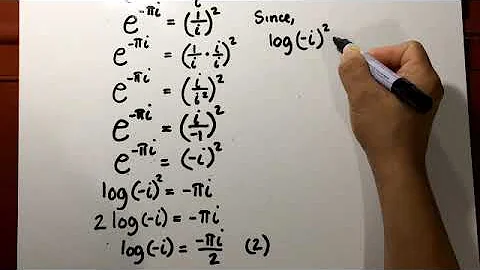 e^{-πi} = (1/i)^2
e^{-πi} = (1/i · i/i)^2
e^{-πi} = (i/i^2)^2
e^{-πi} = (i/-1)^2
e^{-πi} = (-i)^2
log(-i)^2 = -πi
2 log(-i) = -πi
log(-i) = -πi/2 (2)
Since,
log(-i)^2